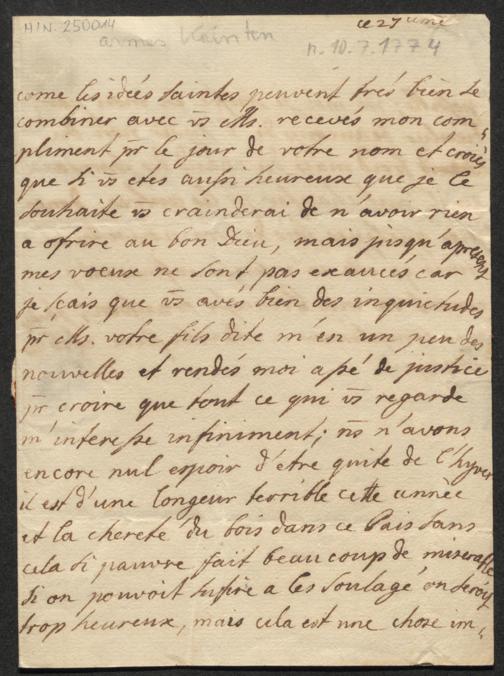 HIN. 250014
ce 27 
n. 10. 7. 1774
come les idées saintes peuvent trés bien se
combiner avec vs Ms. recevés mon com
pliment pr le jour de votre nom et croiés
que si vs etes aussi heureux que je le
souhaite vs crainderai de n'avoir rien
a ofrire au bon Dieu, mais jusqu'apresent
mes voeux ne sont pas exaucés car
je sçais que vs avés bien des inquietudes
pr Ms. votre fils dite m'en un peu des
nouvelles et rendés moi a sé de justice
pr croire que tout ce qui vs regarde
m'interesse infiniment; ns n'avons
encore nul espoir d'etre quite de l'hyver
il est d'une longeur terrible cette année
et la cherete du bois dans ce Pais sans
cela si pauvre fait beaucoup de
si on pouvoit sufire a les soulagé on seroit
trop heureux, mais cela est une chose im